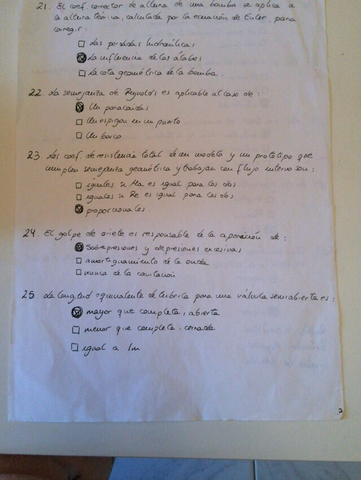 21. El coef. corrector de altura de una bomba se aplica a
la altura teórica, calculada por la ecuación de Euler, para
corregir:
Las perdidas hidraúlicas
La influencia de los álabes
La cota geométrica de la bomba.
22. La semejanza de Reynolds es aplicable al caso de:
Un paracaídas
Un espigón en un puerto
Un barco.
23. Los coef. de resistencia total de un modelo y un prototipo que
cumplen semejanza geométrica y trabajan con flujo intenso son:
iguales si Ma es igual para los dos
iguales si Re es igual para los dos
proporcionales.
24. El golpe de ariete es responsable de la aparición de:
Sobrepresiones y depresiones excesivas
amortiguamiento de la onda
nunca de la cavitación
25. La longitud equivalente de tubería para una válvula semiabierta es:
mayor que completa, abierta
menor que completa, cerrada
igual a 1m
2